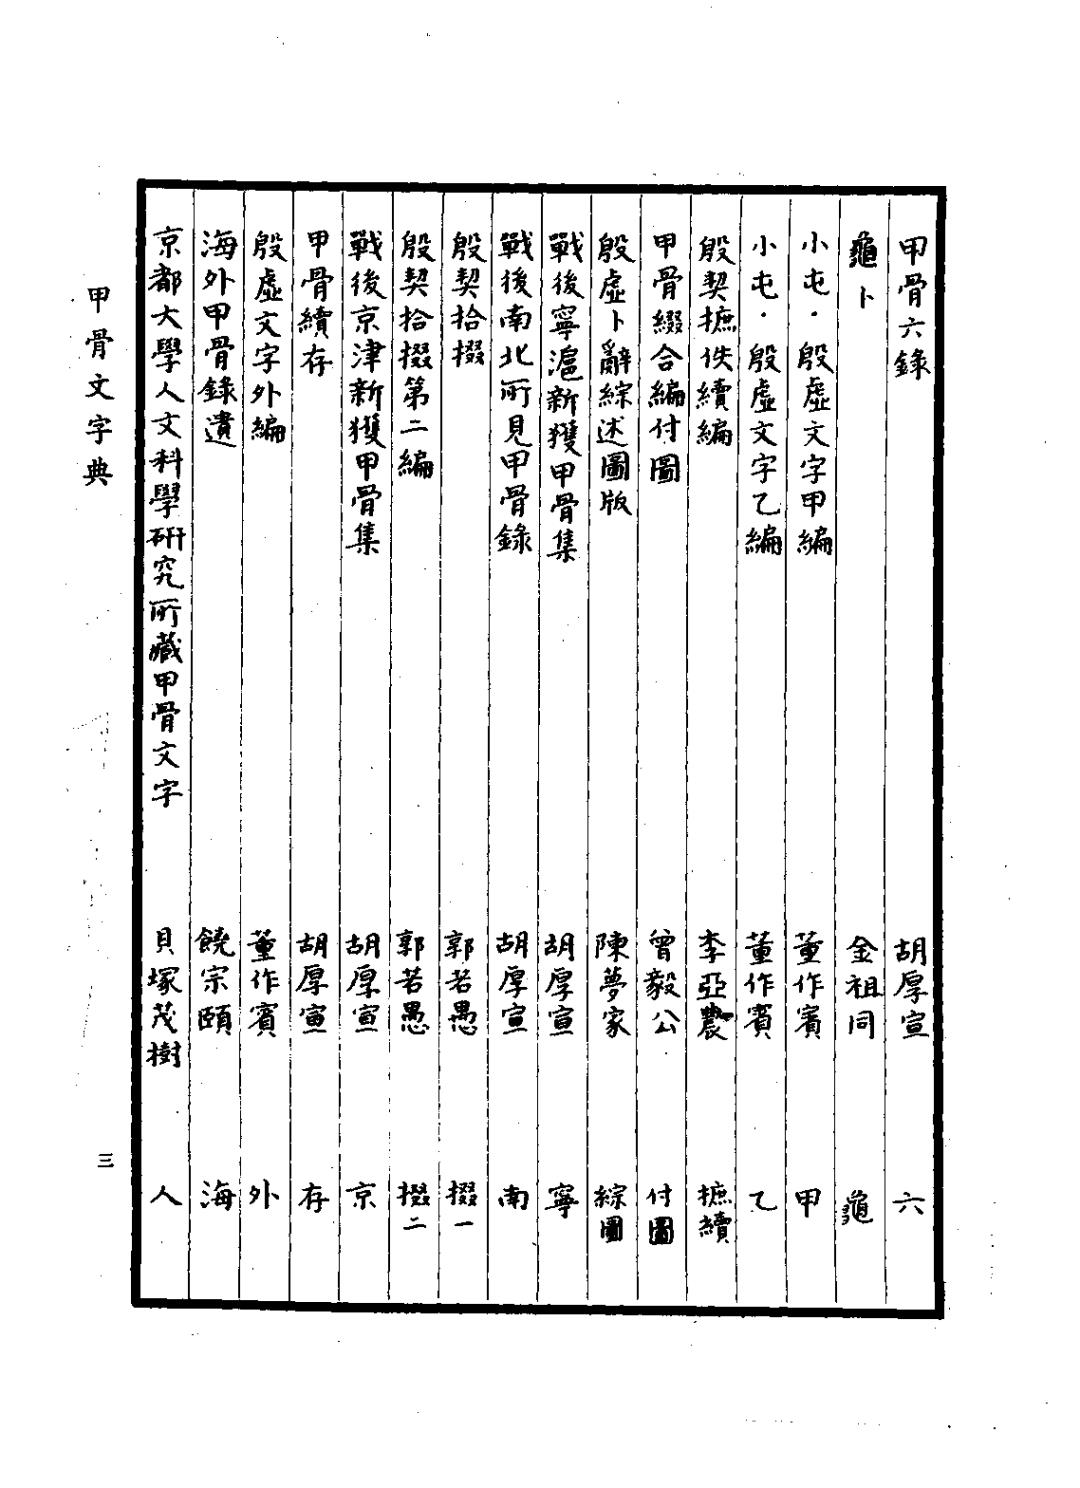 甲骨六錄 胡厚宣 六
龜卜 金祖同 龜
小屯·殷虛文字甲編 董作賓 甲
小屯·殷虛文字乙編 董作賓 乙
殷契摭佚續編 李亞農 摭續
甲骨綴合編付圖 曾毅公 付圖
殷虛卜辭綜述圖版 陳夢家 綜圖
戰後寧滬新獲甲骨集 胡厚宣 寧
戰後南北所見甲骨錄 胡厚宣 南
殷契拾掇 郭若愚 掇一
殷契拾掇第二編 郭若愚 掇二
戰後京津新獲甲骨集 胡厚宣 京
甲骨續存 胡厚宣 存
殷虛文字外編 董作賓 外
海外甲骨錄遺 饒宗頤 海
京都大學人文科學研究所藏甲骨文字 貝塚茂樹 人
甲骨文字典
三